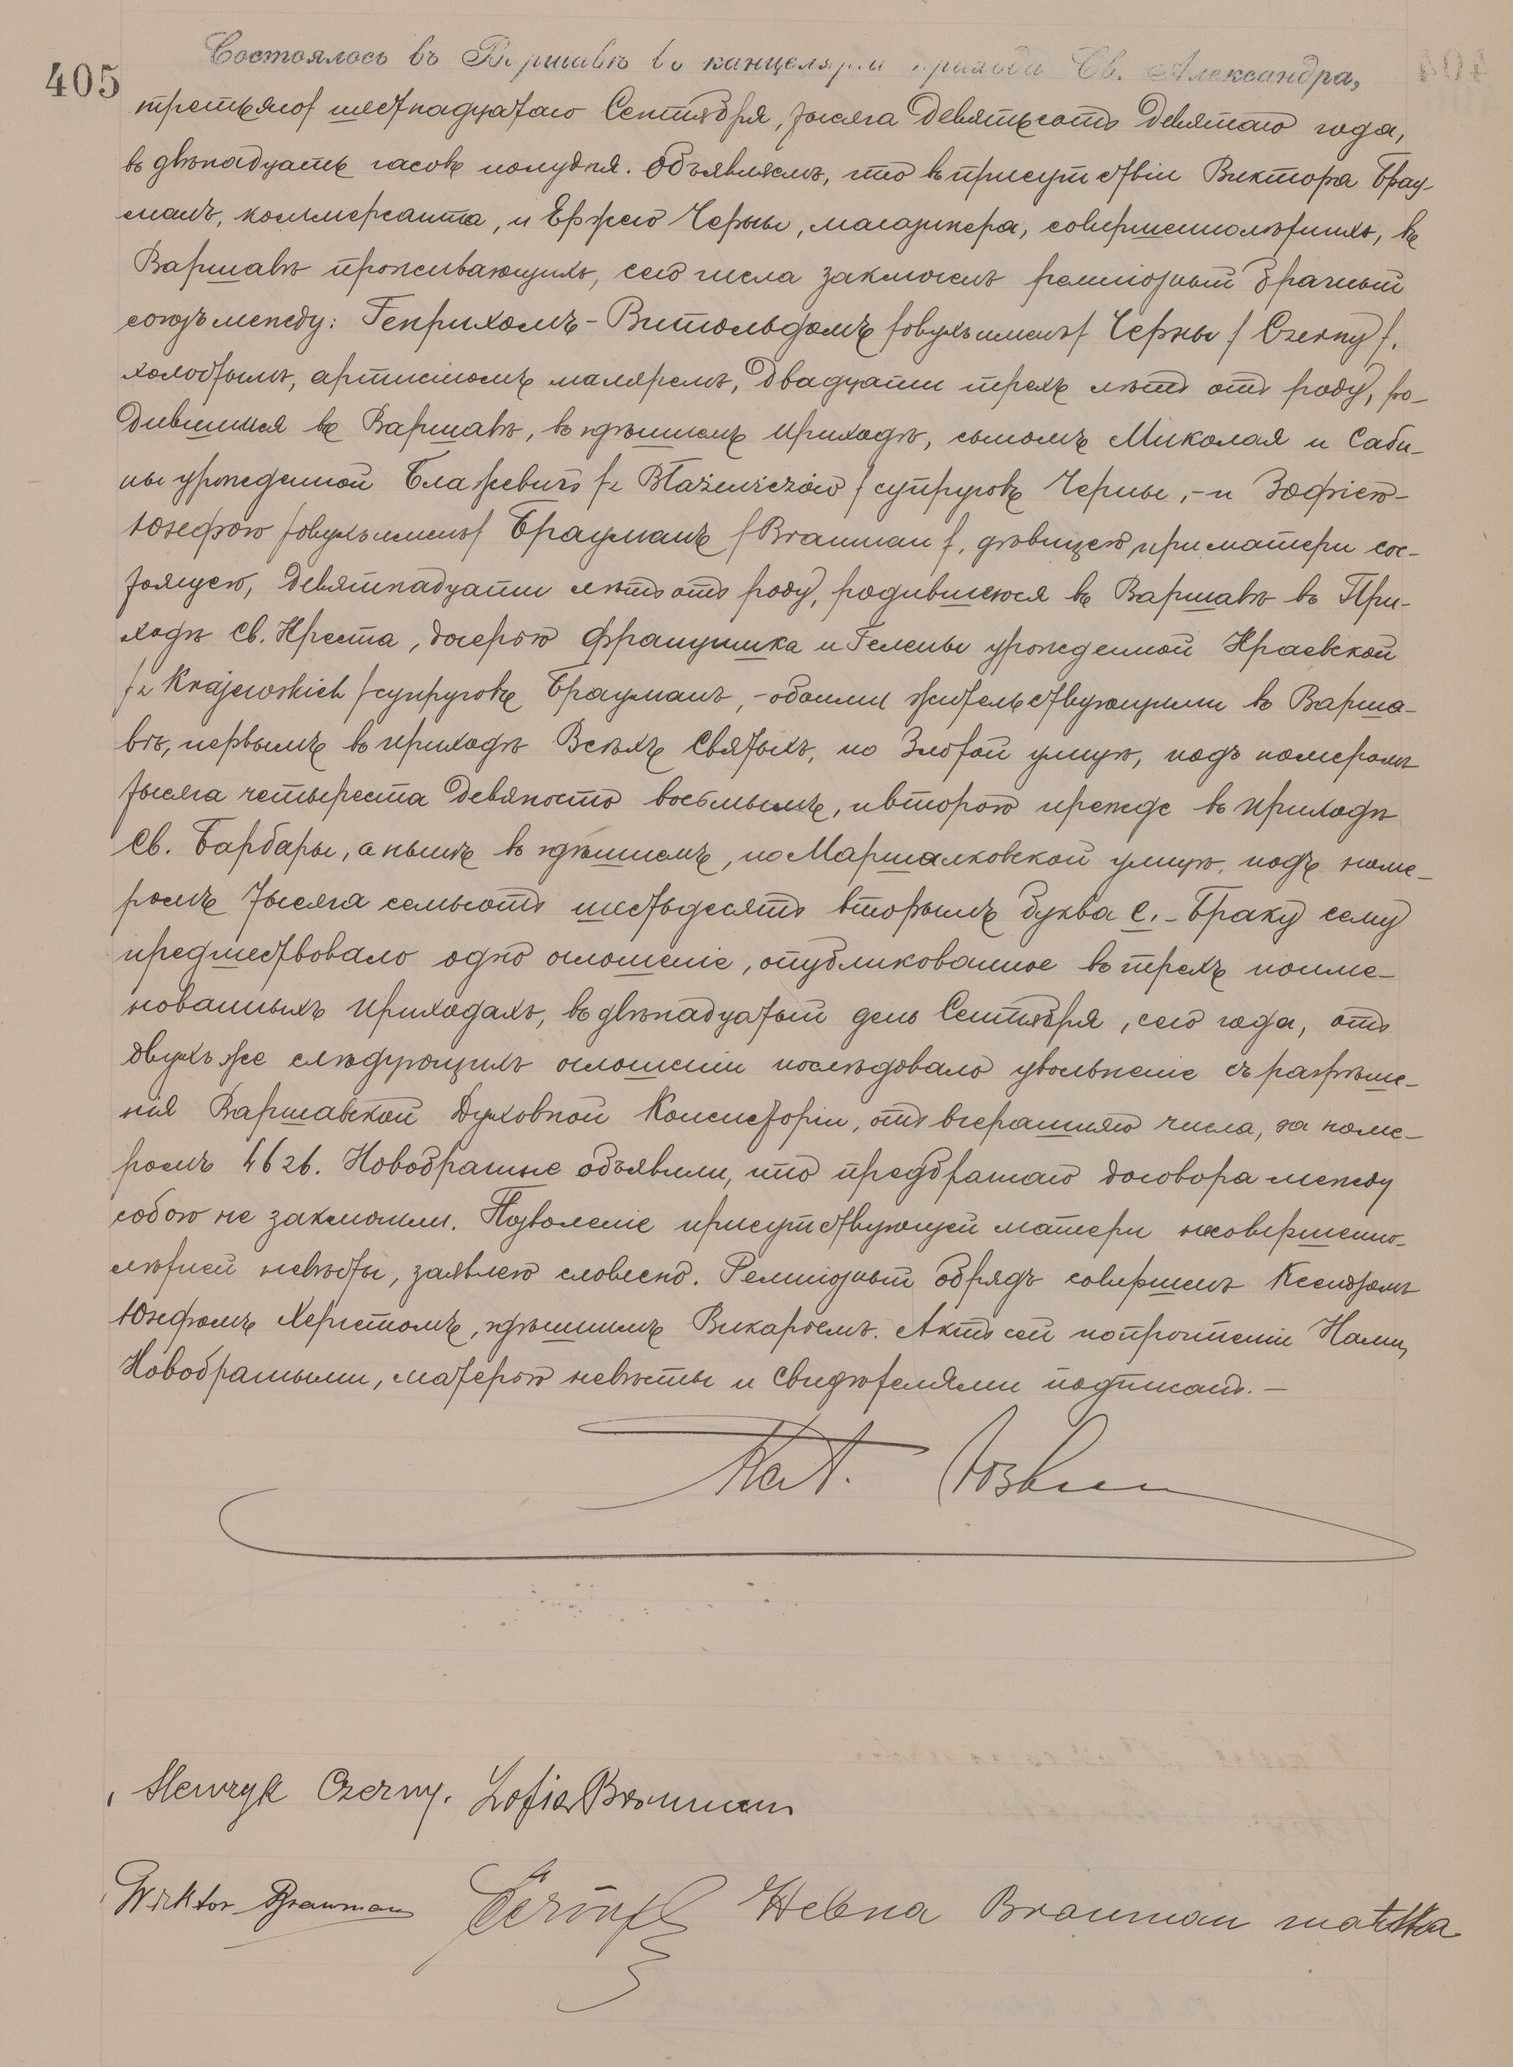 405
Состоялось въ Варшавѣ въ канцеляріи прихода Св. Александра,
третьяго/ шестнадцатаго Сентября, тысяча девятьсотъ девятаго года,
въ двѣнадцать часовъ полудня. Объявляемъ, что въ присутствіи Виктора Брау-
манъ, коммерсанта, и Ержего Черны, магазинера, совершеннолѣтнихъ, въ
Варшавѣ проживающихъ, сего числа заключенъ религіозный брачный
союзъ между: Генрихомъ-Витольдомъ /двухъ именъ/ Черны / Czerny /,
холостымъ, артистомъ маляремъ, двадцати трехъ лѣтъ отъ роду, ро-
дившимся въ Варшавѣ, въ здѣшнемъ приходѣ, сыномъ Миколая и Саби-
ны урожденной Блажевичъ /z Błażewiczów / супруговъ Черны, - и Зофіею-
Юзефою /двухъ именъ/ Брауманъ / Brauman /, дѣвицею, при матери сос-
тоящею, девятнадцати лѣтъ отъ роду, родившеюся въ Варшавѣ въ При-
ходѣ Св. Креста, дочерью Францишка и Гелены урожденной Краевской
/z Krajewskich / супруговъ Брауманъ, - обоими жительствующими въ Варша-
вѣ, первымъ въ приходѣ Всѣхъ Святыхъ, по Злотой улицѣ, подъ номеромъ
тысяча четыреста девяносто восьмымъ, и второю прежде въ приходѣ
Св. Барбары, а нынѣ въ здѣшнемъ, по Маршалковской улицѣ, подъ номе-
ромъ тысяча семьсотъ шестьдесятъ вторымъ буква C. - Браку сему
предшествовало одно оглошеніе, опубликованное въ трехъ поиме-
нованныхъ приходахъ, въ двѣнадцатый день Сентября, сего года, отъ
двухъ же слѣдующихъ оглошеній послѣдовало увольненіе съ разрѣше-
нія Варшавской Духовной Консисторіи, отъ вчерашняго числа, за номе-
ромъ 4626. Новобрачные объявили, что предбрачнаго договора между
собою не заключили. Позволеніе присутствующей матери несовершенно-
лѣтней невѣсты, заявлено словесно. Религіозный обрядъ совершенъ Ксендзомъ
Юзефомъ Херстомъ, здѣшнимъ Викаріемъ. Актъ сей по прочтеніи Нами,
Новобрачными, матерью невѣсты и свидѣтелями подписанъ. -
Henryk Czerny. Zofia Brauman
Wiktor Brauman Helena Brauman matka